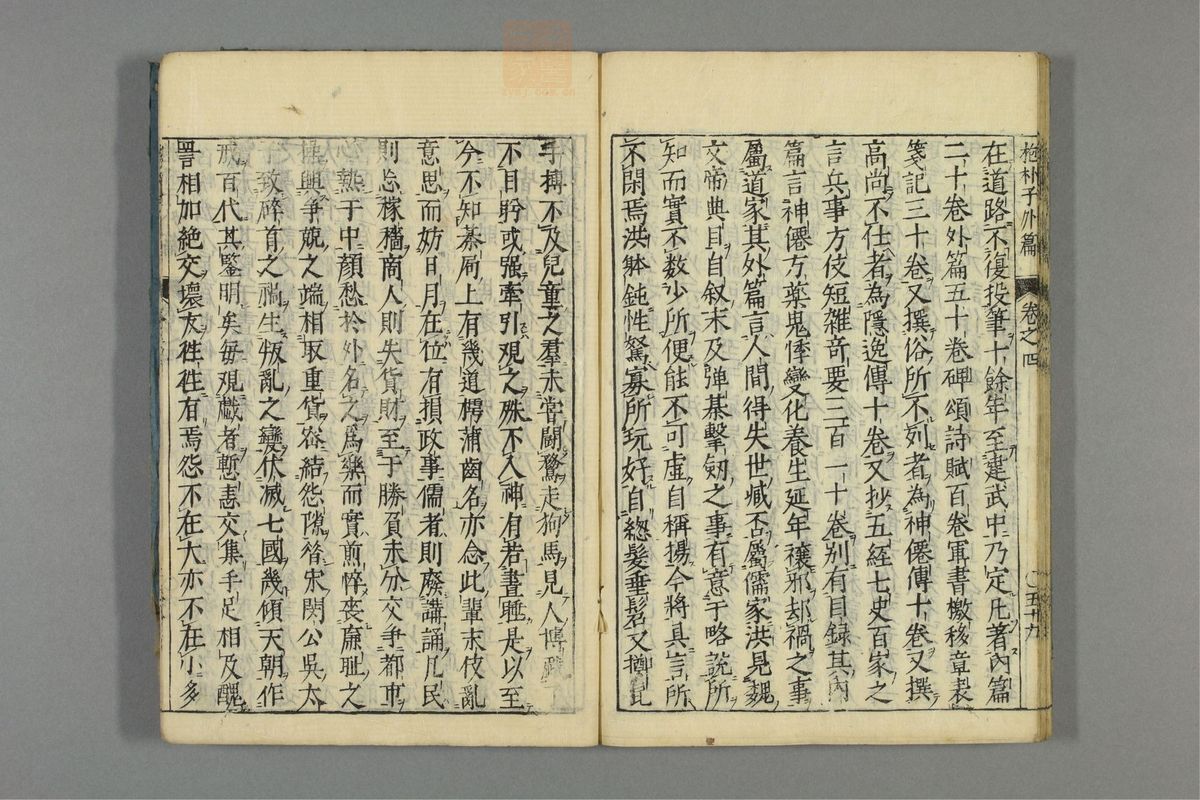 抱朴子外篇 卷之四 〇五十九
在道路不復投筆十餘年至建武中乃定凡著內篇
二十卷外篇五十卷碑頌詩賦百卷軍書檄移章表
箋記三十卷又撰俗所不列者為神僊傳十卷又撰
高尚不仕者為隱逸傳十卷又抄五經七史百家之
言兵事方伎短雜奇要三百一十卷別有目録其內
篇言神僊方藥鬼恠變化養生延年禳邪却禍之事
屬道家其外篇言人間得失世臧否屬儒家洪見魏
文帝典目自叙末及弾棊擊劒之事有意于略說所
知而實不数少所便能不可虛自稱揚今將具言所
不閑焉洪躰鈍性駑寡所玩好自總髮垂髫又擲瓦
手搏不及兒童之羣未嘗鬪鶩走狗馬見人博戲
不目眄或强牽引观之殊不入神有若晝睡是以至
今不知棊局上有幾道樗蒲齒名亦念此輩末伎亂
意思而妨日月在位有損政事儒者則廢講誦凡民
則忘稼穡商人則失貨財至于勝負未分交爭都市
心熱于中顔愁於外名之爲樂而實煎悴喪廉耻之
操興争競之端相取重貨宻結怨隙昔宋閔公吳太
子致碎首之禍生叛亂之變伏滅七國幾傾天朝作
戒百代其鑒明矣毎观戲者慙恚交集手足相及醜
詈相加絶交壞友徃徃有焉怨不在大亦不在小多